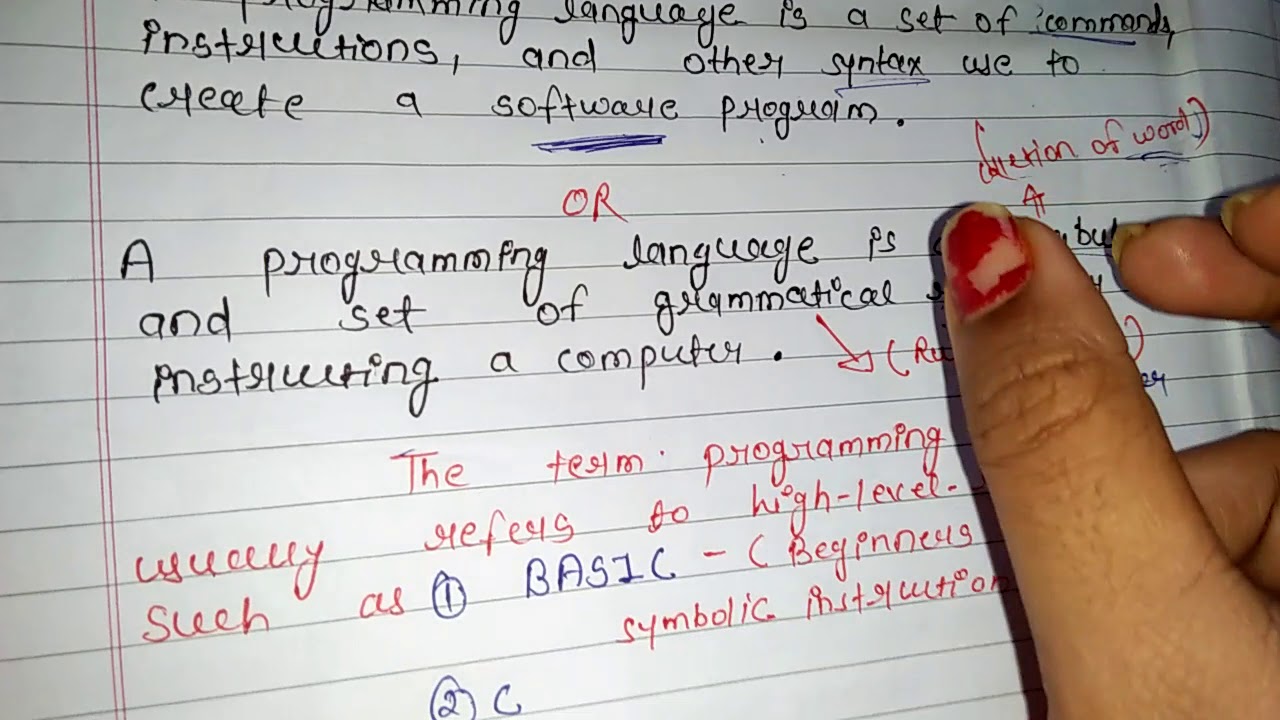 programming language is a set of commands,
instructions, and other syntax use to
create a software program.
of word)
OR
A programming language is
and set of grammatical
instructing a computer.
The term programming
usually refers to high-level
such as ① BASIC - (Beginners
symbolic instruction
② C